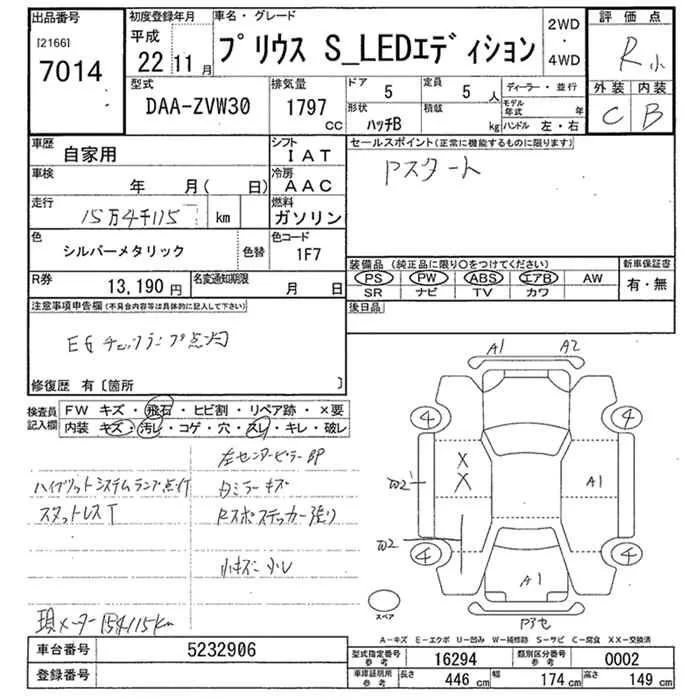 出品番号
[2166]
7014
初度登録年月
平成
22 11 月
車名・グレード
プリウス S_LEDエディション
2WD
・
4WD
評価点
R 小
外装 内装
C B
型式
DAA-ZVW30
排気量
1797
CC
ドア
5
定員
5 人
形状
ハッチB
積載
kg
ディーラー・並行
モデル年式 年
ハンドル 左・右
車歴
自家用
シフト
IAT
車検
年 月( 日)
冷房
AAC
走行
15万4千115 km
燃料
ガソリン
色
シルバーメタリック
色替
色コード
1F7
R券
13,190 円
名変通知期限
月 日
セールスポイント(正常に機能するものに限ります)
Pスタート
装備品 (純正品に限り○をつけてください)
PS PW ABS エアB AW
SR ナビ TV カワ
新車保証書
有・無
後日品
注意事項申告欄(不具合内容等は具体的に記入して下さい)
EGチェックランプ点灯
修復歴 有〔箇所 〕
検査員記入欄
FW キズ・飛石・ヒビ割・リペア跡・×要
内装 キズ・汚レ・コゲ・穴・スレ・キレ・破レ
左センターピラー部
ハイブリットシステムランプ点灯
スタットレスT
小キズ 小レ
現メーター 154115km
A1 A2
4 4
X
X
A1
W2
W2
4 4
A1
スペア
A-キズ E-エクボ U-凹み W-補修跡 S-サビ C-腐食 XX-交換済
車台番号
5232906
登録番号
型式指定番号
参考
16294
類別区分番号
参考
0002
車庫証明用
参考
長さ
446 cm
幅
174 cm
高さ
149 cm